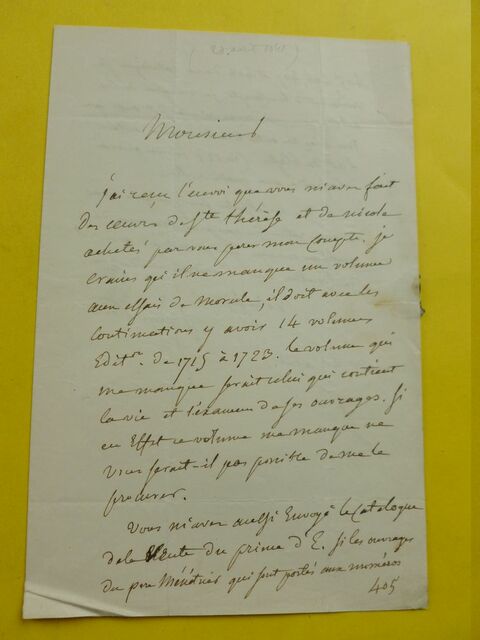 Monsieur
J'ai reçu l'envoi que vous m'avez fait
des œuvres de Ste thérèse et de nicole
achetés par vous pour mon compte. je
crains qu'il ne manque un volume
aux essais de Morale, il doit avec les
continuations y avoir 14 volumes
Editn. de 1715 à 1723. le volume qui
me manque serait celui qui contient
la vie et l'examen de ses ouvrages. Si
en Effet ce volume me manque ne
vous serait-il pas possible de me le
procurer.
Vous m'avez aussi Envoyé le Catalogue
de la Vente du prince d'E. si les ouvrages
du père Ménétrier qui sont portés aux numéros
405